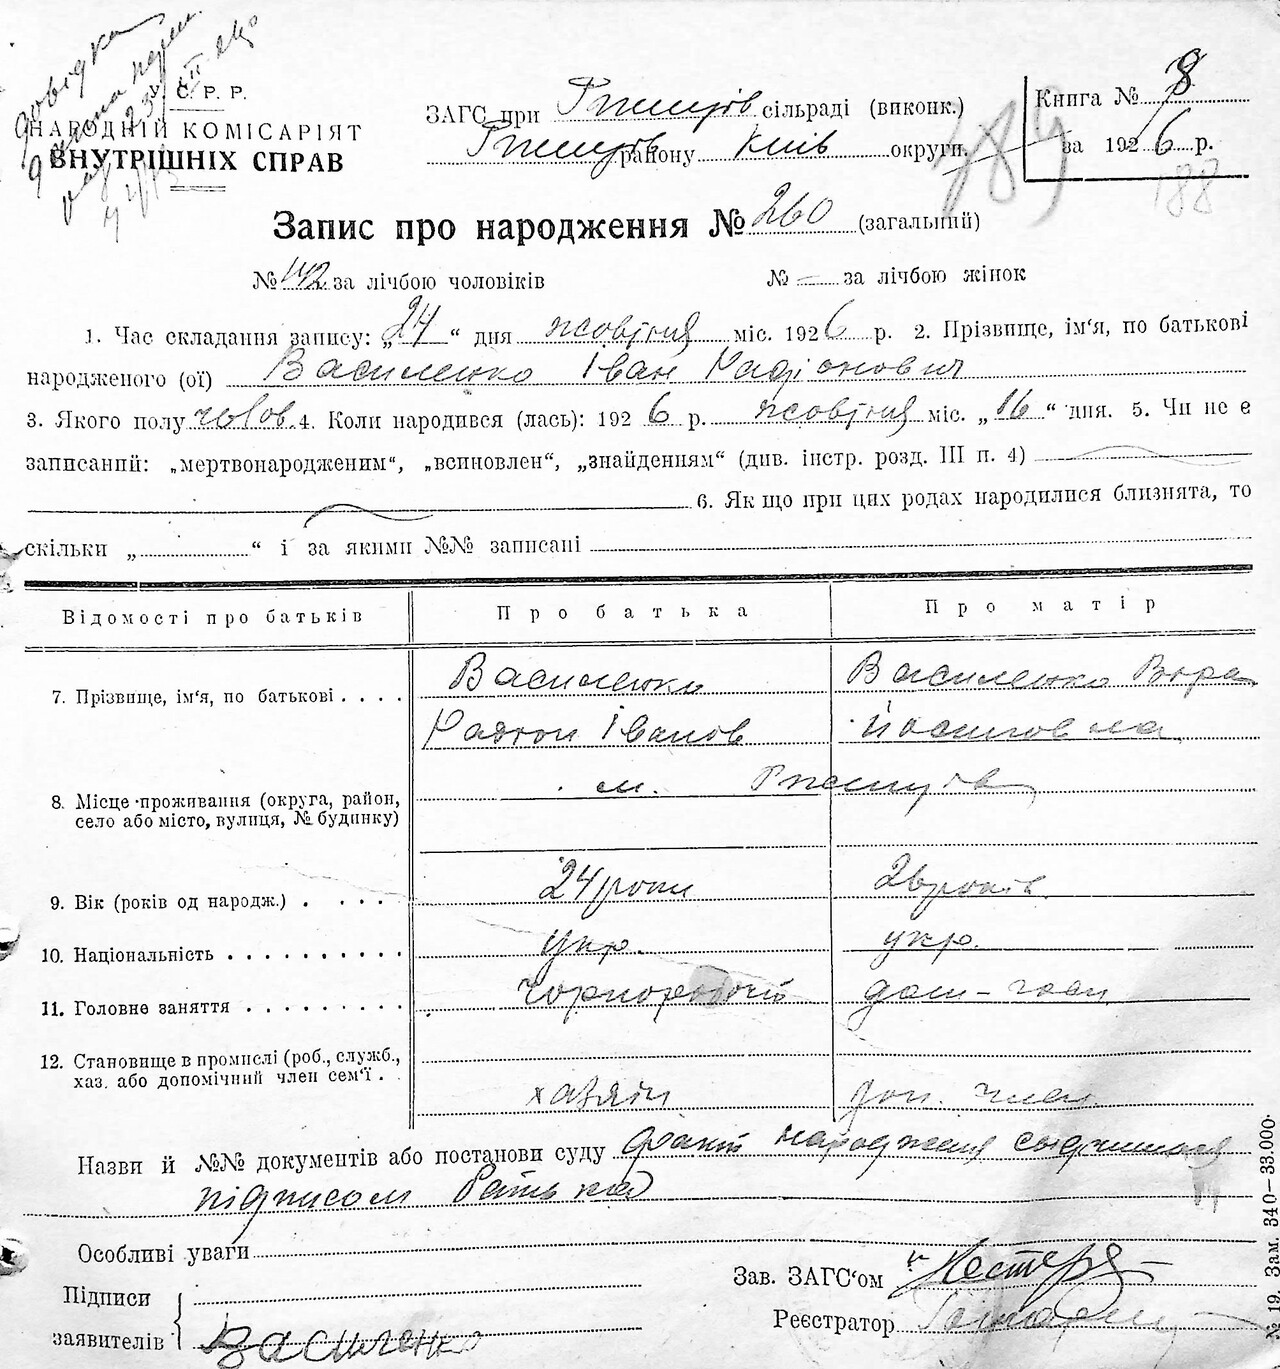 довідка
У. С. Р. Р.
НАРОДНІЙ КОМІСАРІЯТ
ВНУТРІШНІХ СПРАВ
ЗАГС при Ржищів сільраді (виконк.)
Ржищів району Київ округи.
Книга № 8
за 1926 р.
188
Запис про народження № 260 (загальний)
№ 142 за лічбою чоловіків № — за лічбою жінок
1. Час складання запису: „24“ дня жовтня міс. 1926 р. 2. Прізвище, ім‘я, по батькові
народженого (ої) Василенко Іван Радіонович
3. Якого полу чолов. 4. Коли народився (лась): 1926 р. жовтня міс. „16“ дня. 5. Чи не є
записаний: „мертвонародженим“, „всиновлен“, „знайденням“ (див. інстр. розд. III п. 4)
6. Як що при цих родах народилися близнята, то
скільки „ “ і за якими №№ записані
Відомості про батьків Про батька Про матір
7. Прізвище, ім‘я, по батькові . . . . Василенко Василенко Віра
Радіон Іванов Йосиповна
8. Місце проживання (округа, район, м. Ржищів
село або місто, вулиця, № будинку)
9. Вік (років од народж.) . . . . . 24 роки 26 років
10. Національність . . . . . . . . . . укр. укр.
11. Головне заняття . . . . . . . . . чорноробочий дом-госп
12. Становище в промислі (роб., служб.,
хаз. або допомічний член сем‘ї . . хазяїн доп. член
Назви й №№ документів або постанови суду факт народження
підписом батька
Особливі уваги
Зав. ЗАГС‘ом
Підписи
Реєстратор
заявителів Василенко
№ 19. Зам. 340—33.000.